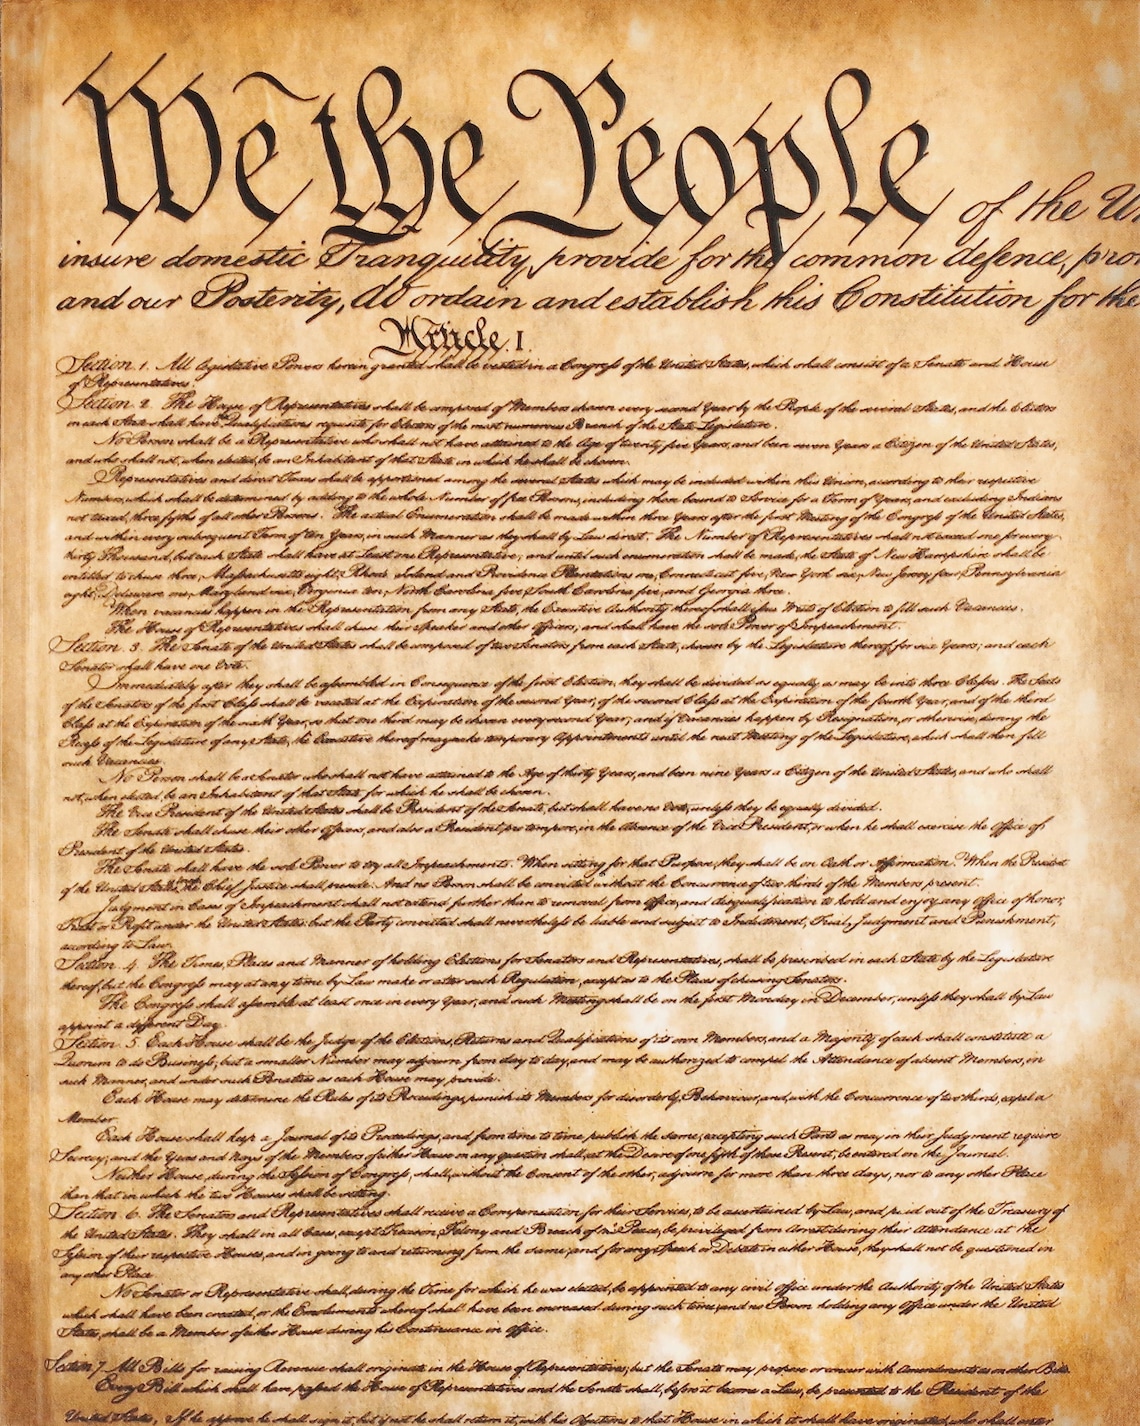 We the People of the Un
insure domestic Tranquility, provide for the common defence, pro
and our Posterity, do ordain and establish this Constitution for the
Article. I.
Section 1. All legislative Powers herein granted shall be vested in a Congress of the United States, which shall consist of a Senate and House
of Representatives.
Section 2. The House of Representatives shall be composed of Members chosen every second Year by the People of the several States, and the Electors
in each State shall have the Qualifications requisite for Electors of the most numerous Branch of the State Legislature.
No Person shall be a Representative who shall not have attained to the Age of twenty five Years, and been seven Years a Citizen of the United States,
and who shall not, when elected, be an Inhabitant of that State in which he shall be chosen.
Representatives and direct Taxes shall be apportioned among the several States which may be included within this Union, according to their respective
Numbers, which shall be determined by adding to the whole Number of free Persons, including those bound to Service for a Term of Years, and excluding Indians
not taxed, three fifths of all other Persons. The actual Enumeration shall be made within three Years after the first Meeting of the Congress of the United States,
and within every subsequent Term of ten Years, in such Manner as they shall by Law direct. The Number of Representatives shall not exceed one for every
thirty Thousand, but each State shall have at Least one Representative; and until such enumeration shall be made, the State of New Hampshire shall be
entitled to chuse three, Massachusetts eight, Rhode Island and Providence Plantations one, Connecticut five, New York six, New Jersey four, Pennsylvania
eight, Delaware one, Maryland six, Virginia ten, North Carolina five, South Carolina five, and Georgia three.
When vacancies happen in the Representation from any State, the Executive Authority thereof shall issue Writs of Election to fill such Vacancies.
The House of Representatives shall chuse their Speaker and other Officers; and shall have the sole Power of Impeachment.
Section. 3. The Senate of the United States shall be composed of two Senators from each State, chosen by the Legislature thereof, for six Years; and each
Senator shall have one Vote.
Immediately after they shall be assembled in Consequence of the first Election, they shall be divided as equally as may be into three Classes. The Seats
of the Senators of the first Class shall be vacated at the Expiration of the second Year, of the second Class at the Expiration of the fourth Year, and of the third
Class at the Expiration of the sixth Year, so that one third may be chosen every second Year; and if Vacancies happen by Resignation, or otherwise, during the
Recess of the Legislature of any State, the Executive thereof may make temporary Appointments until the next Meeting of the Legislature, which shall then fill
such Vacancies.
No Person shall be a Senator who shall not have attained to the Age of thirty Years, and been nine Years a Citizen of the United States, and who shall
not, when elected, be an Inhabitant of that State for which he shall be chosen.
The Vice President of the United States shall be President of the Senate, but shall have no Vote, unless they be equally divided.
The Senate shall chuse their other Officers, and also a President pro tempore, in the Absence of the Vice President, or when he shall exercise the Office of
President of the United States.
The Senate shall have the sole Power to try all Impeachments. When sitting for that Purpose, they shall be on Oath or Affirmation. When the President
of the United States is tried, the Chief Justice shall preside: And no Person shall be convicted without the Concurrence of two thirds of the Members present.
Judgment in Cases of Impeachment shall not extend further than to removal from Office, and disqualification to hold and enjoy any Office of honor,
Trust or Profit under the United States: but the Party convicted shall nevertheless be liable and subject to Indictment, Trial, Judgment and Punishment,
according to Law.
Section. 4. The Times, Places and Manner of holding Elections for Senators and Representatives, shall be prescribed in each State by the Legislature
thereof; but the Congress may at any time by Law make or alter such Regulation, except as to the Places of chusing Senators.
The Congress shall assemble at least once in every Year, and such Meeting shall be on the first Monday in December, unless they shall by Law
appoint a different Day.
Section. 5. Each House shall be the Judge of the Elections, Returns and Qualifications of its own Members, and a Majority of each shall constitute a
Quorum to do Business, but a smaller Number may adjourn from day to day, and may be authorized to compel the Attendance of absent Members, in
such Manner, and under such Penalties as each House may provide.
Each House may determine the Rules of its Proceedings, punish its Members for disorderly Behaviour, and, with the Concurrence of two thirds, expel a
Member.
Each House shall keep a Journal of its Proceedings, and from time to time publish the same, excepting such Parts as may in their Judgment require
Secrecy; and the Yeas and Nays of the Members of either House on any question shall, at the Desire of one fifth of those Present, be entered on the Journal.
Neither House, during the Session of Congress, shall, without the Consent of the other, adjourn for more than three days, nor to any other Place
than that in which the two Houses shall be sitting.
Section. 6. The Senators and Representatives shall receive a Compensation for their Services, to be ascertained by Law, and paid out of the Treasury of
the United States. They shall in all Cases, except Treason, Felony and Breach of the Peace, be privileged from Arrest during their Attendance at the
Session of their respective Houses, and in going to and returning from the same; and for any Speech or Debate in either House, they shall not be questioned in
any other Place.
No Senator or Representative shall, during the Time for which he was elected, be appointed to any civil Office under the Authority of the United States
which shall have been created, or the Emoluments whereof shall have been encreased during such time; and no Person holding any Office under the United
States, shall be a Member of either House during his Continuance in Office.
Section 7 All Bills for raising Revenue shall originate in the House of Representatives; but the Senate may propose or concur with Amendments as on other Bills.
Every Bill which shall have passed the House of Representatives and the Senate shall, before it become a Law, be presented to the President of the
United States; If he approve he shall sign it, but if not he shall return it, with his Objections to that House in which it shall have originated, who shall enter